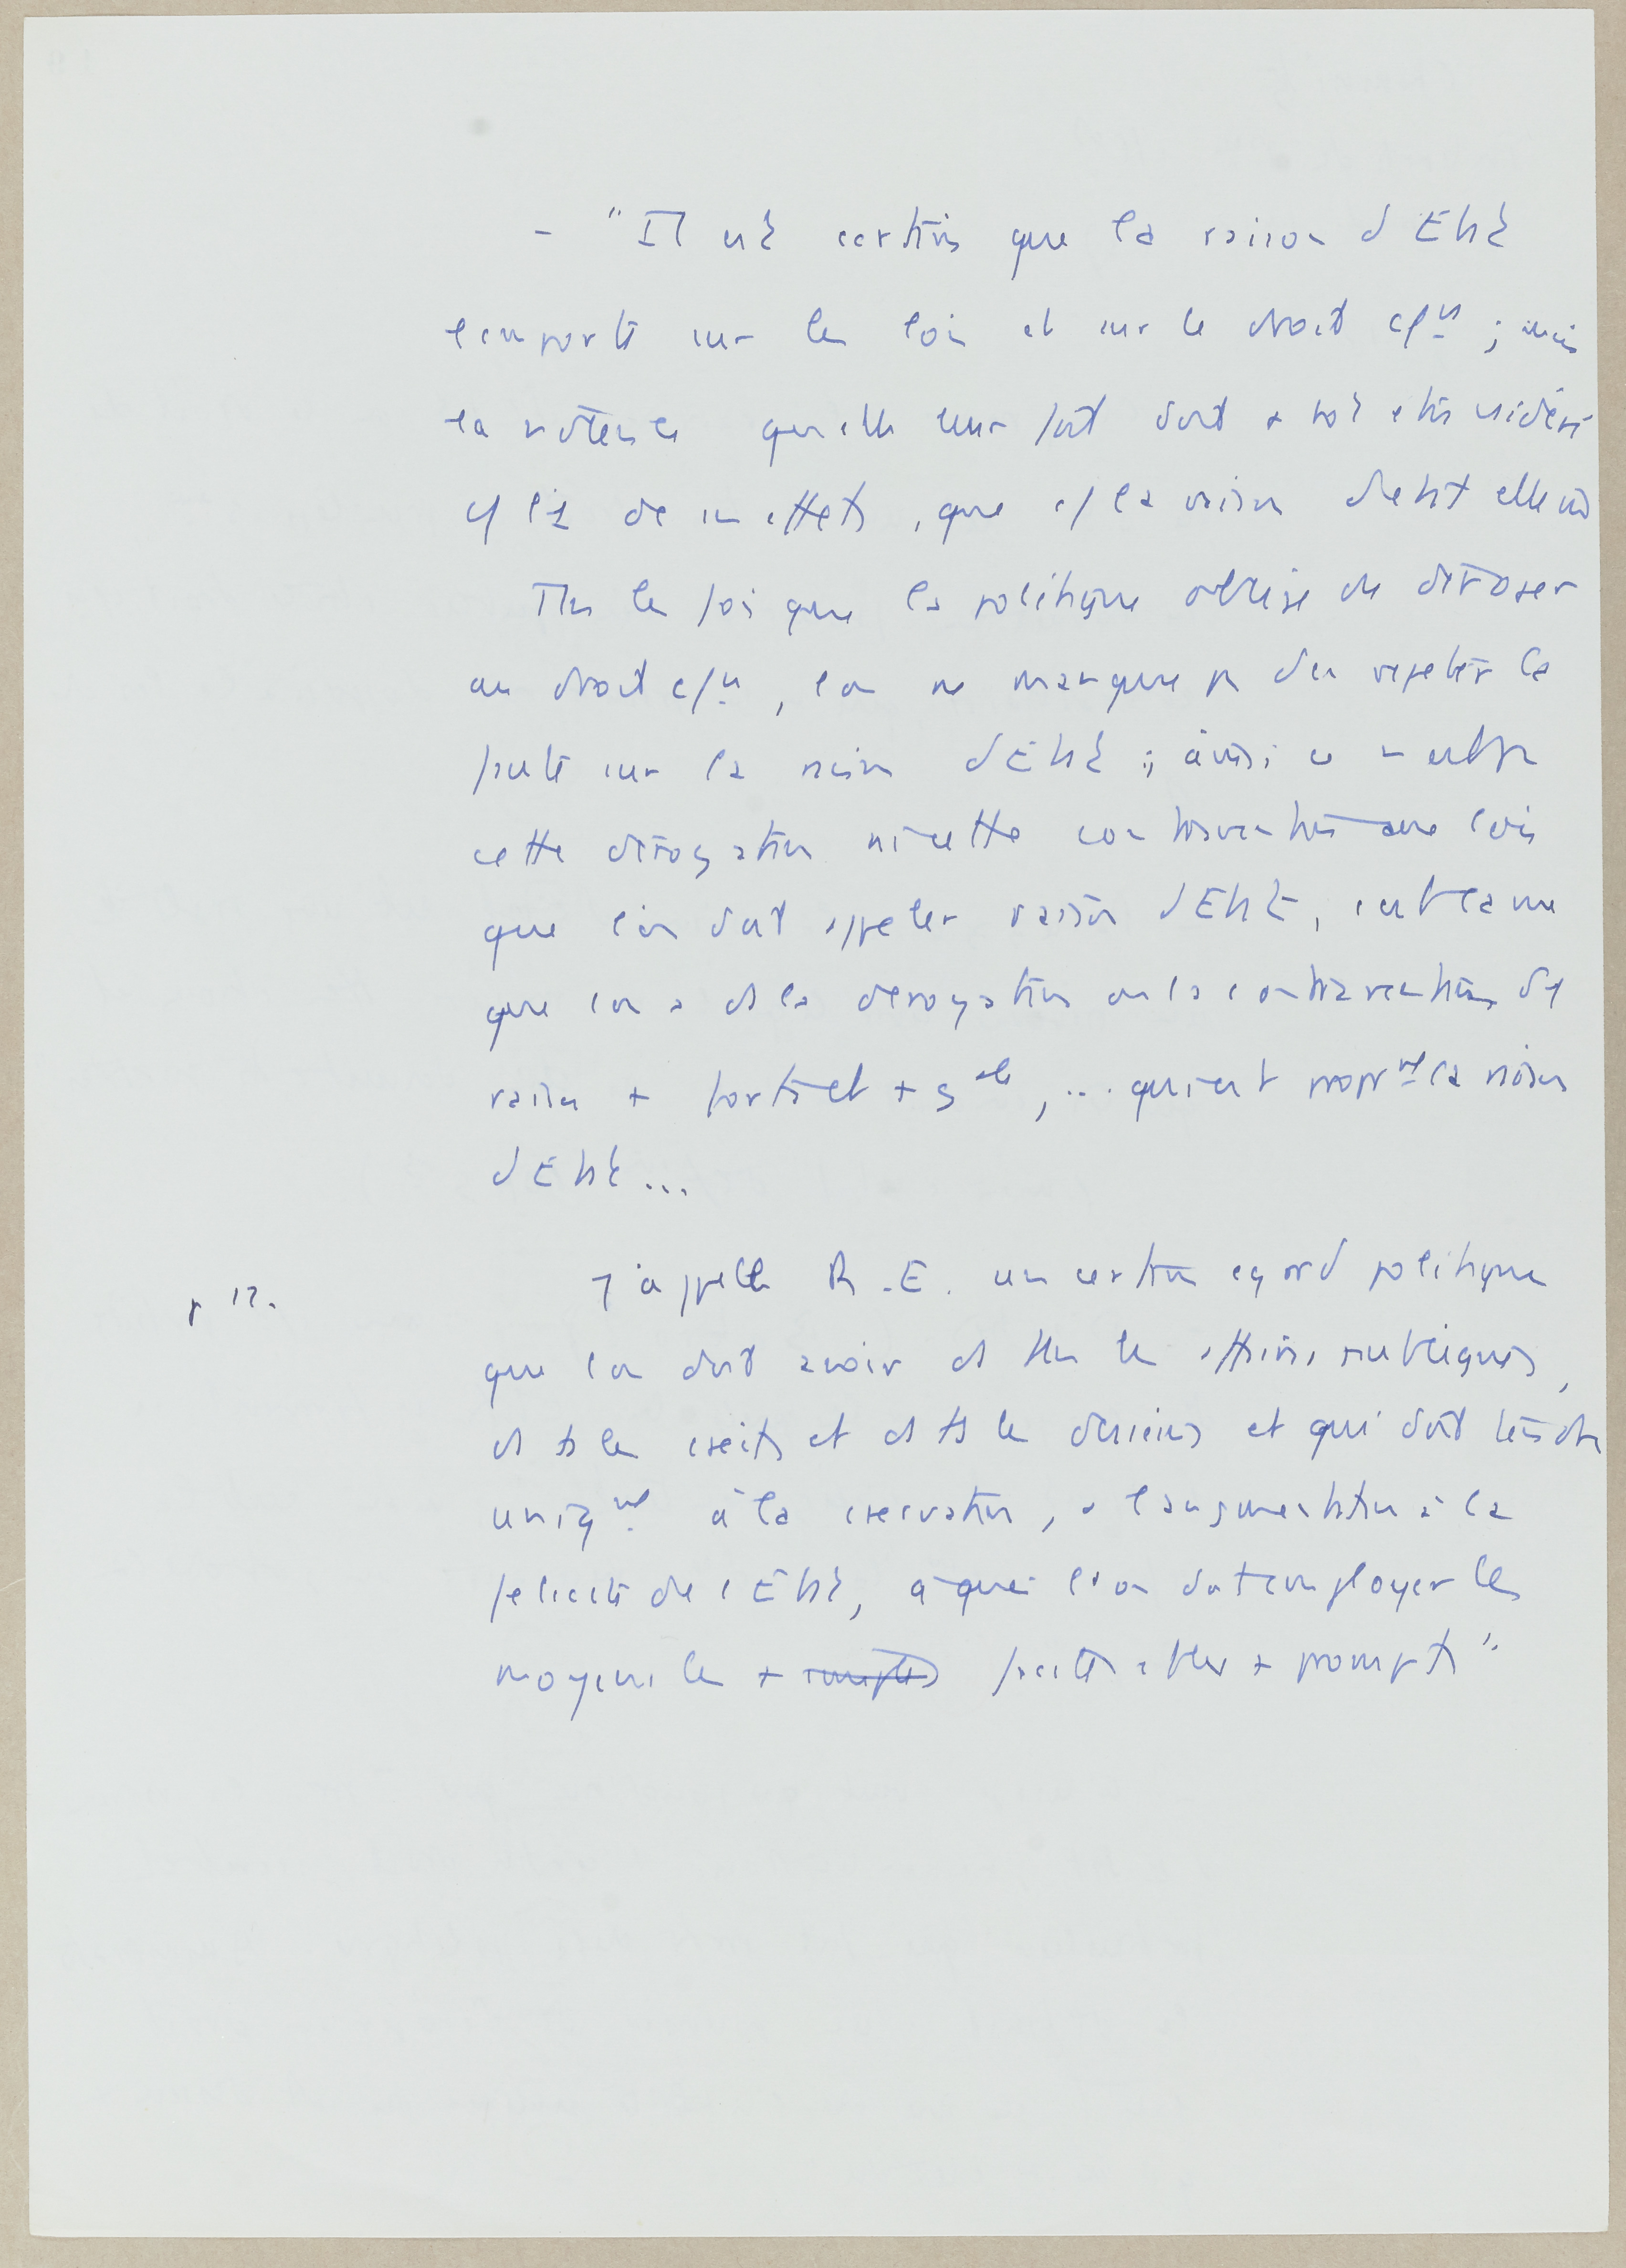 - "Il est certain que la raison d'Etat
l'emporte sur les lois et sur le droit c/un ; mais
la violence qu'elle leur fait doit + tôt être considérée
c/ l'1 de ses effets, que c/ la raison d'etat elle même
Ttes les fois que la politique oblige de déroger
au droit c/un, l'on ne manque pas d'en rejeter la
faute sur la raison d'Etat ; ainsi ce n'est pas
cette dérogation ni cette contravention aux lois
que l'on doit appeler raison d'Etat, c'est la cause
que l'on a ds la derogation ou la contravention de
raison + forte et + gale, ... qui est proprmt la raison
d'Etat...
p 12. J'appelle R.E. un certain egard politique
que l'on doit avoir ds ttes les affaires publiques,
ds ts les conseils et ds ts les desseins et qui doit tendre
uniqmt à la conservation, à l'augmentation à la
felicité de l'Etat, à quoi l'on doit employer les
moyens les + simples faciles et les + prompts"